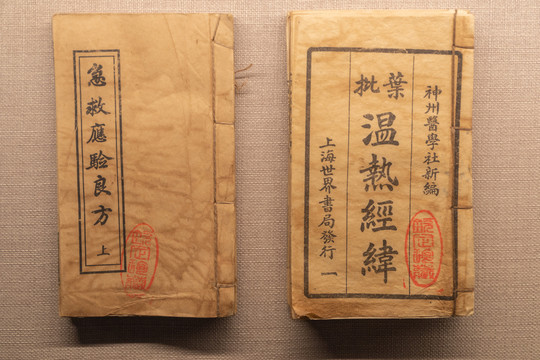 急救應驗良方
上
神州醫學社新編
葉批
温熱經緯
上海世界書局發行
一